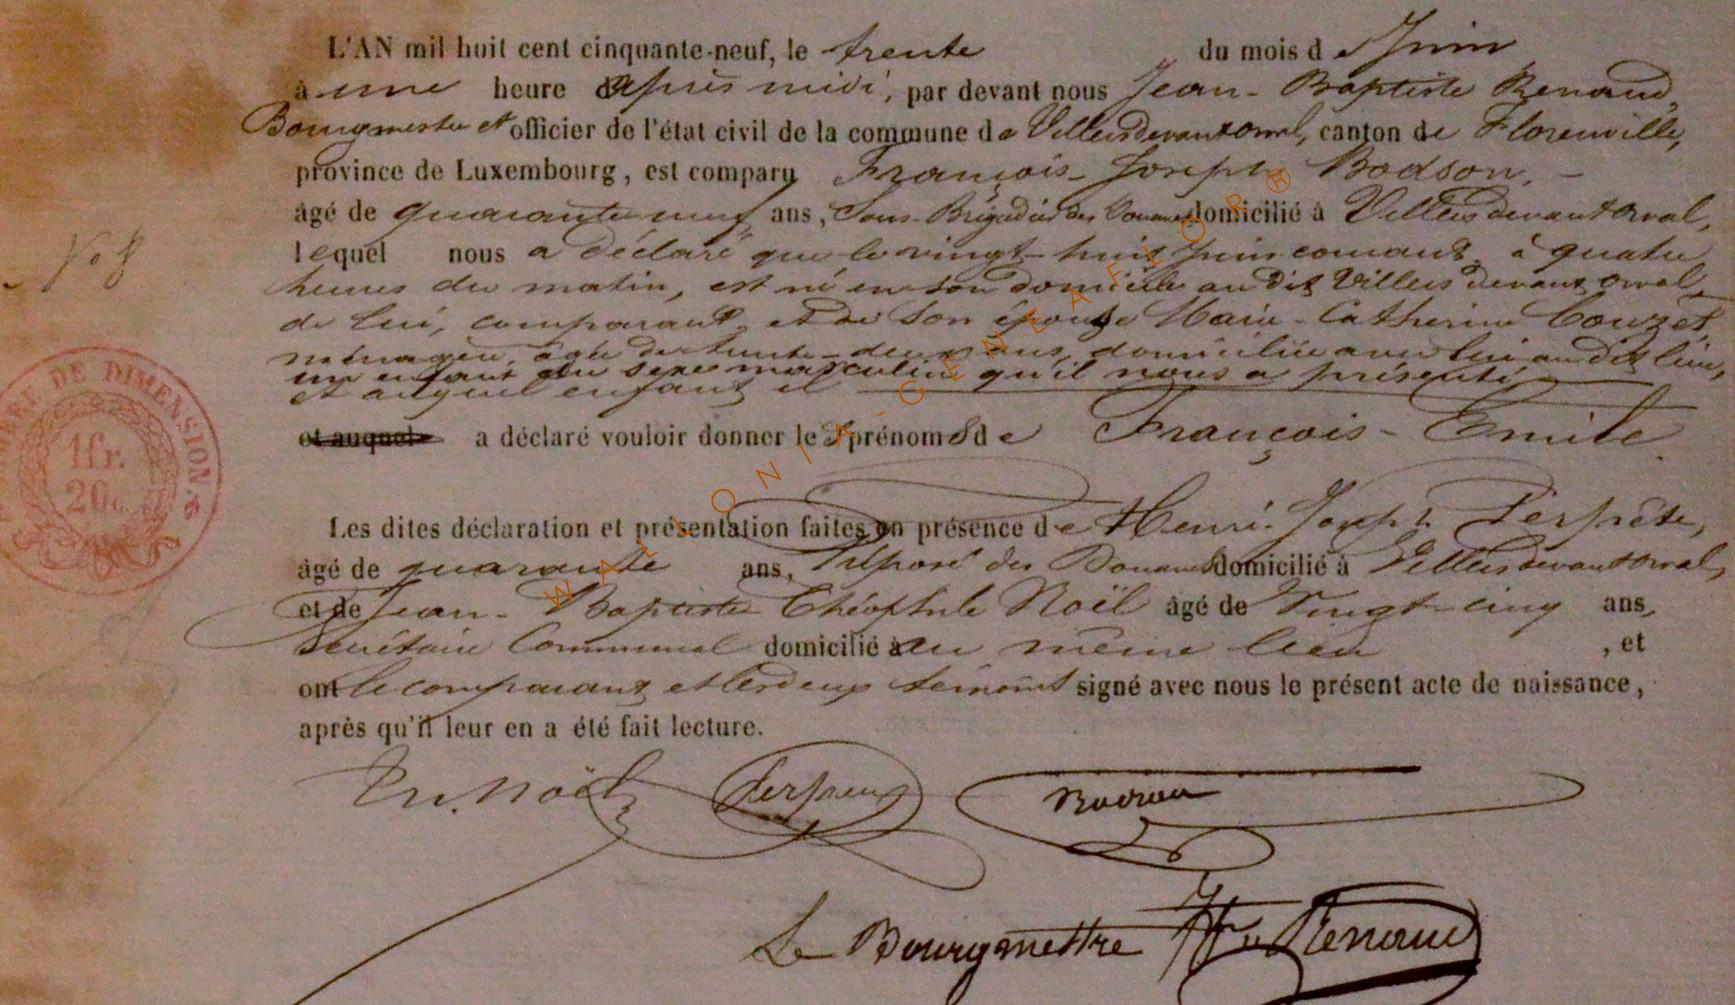 L'AN mil huit cent cinquante-neuf, le trente du mois de Juin
à une heure après midi, par devant nous Jean-Baptiste Renaud,
Bourgmestre et officier de l'état civil de la commune de Villersdevantorval, canton de Florenville,
province de Luxembourg, est comparu François-Joseph Bodson,
âgé de quarante neuf ans, Sous-Brigadier des Douanes domicilié à Villersdevantorval,
lequel nous a déclaré que le vingt-huit juin courant, à quatre
N° 8
heures du matin, est né en son domicile au dit Villers devant orval,
de lui, comparant, et de son épouse Marie-Catherine Couzet,
ménagère, âgée de trente-deux ans, domiciliée avec lui au dit lieu,
un enfant du sexe masculin qu'il nous a présenté
et auquel enfant il
et auquel a déclaré vouloir donner les prénoms de François-Emile
TIMBRE DE DIMENSION.
1fr.
20c.
Les dites déclaration et présentation faites en présence de Henri-Joseph Perpète,
âgé de quarante ans, Préposé des Douanes domicilié à Villersdevantorval,
et de Jean-Baptiste Théophile Noël âgé de Vingt-cinq ans,
Secrétaire Communal domicilié au même lieu, et
ont le comparant et les deux témoins signé avec nous le présent acte de naissance,
après qu'il leur en a été fait lecture.
Th. Noël Perpète Bodson
Le Bourgmestre Renaud
WALLONIA-GENEAFLOR®